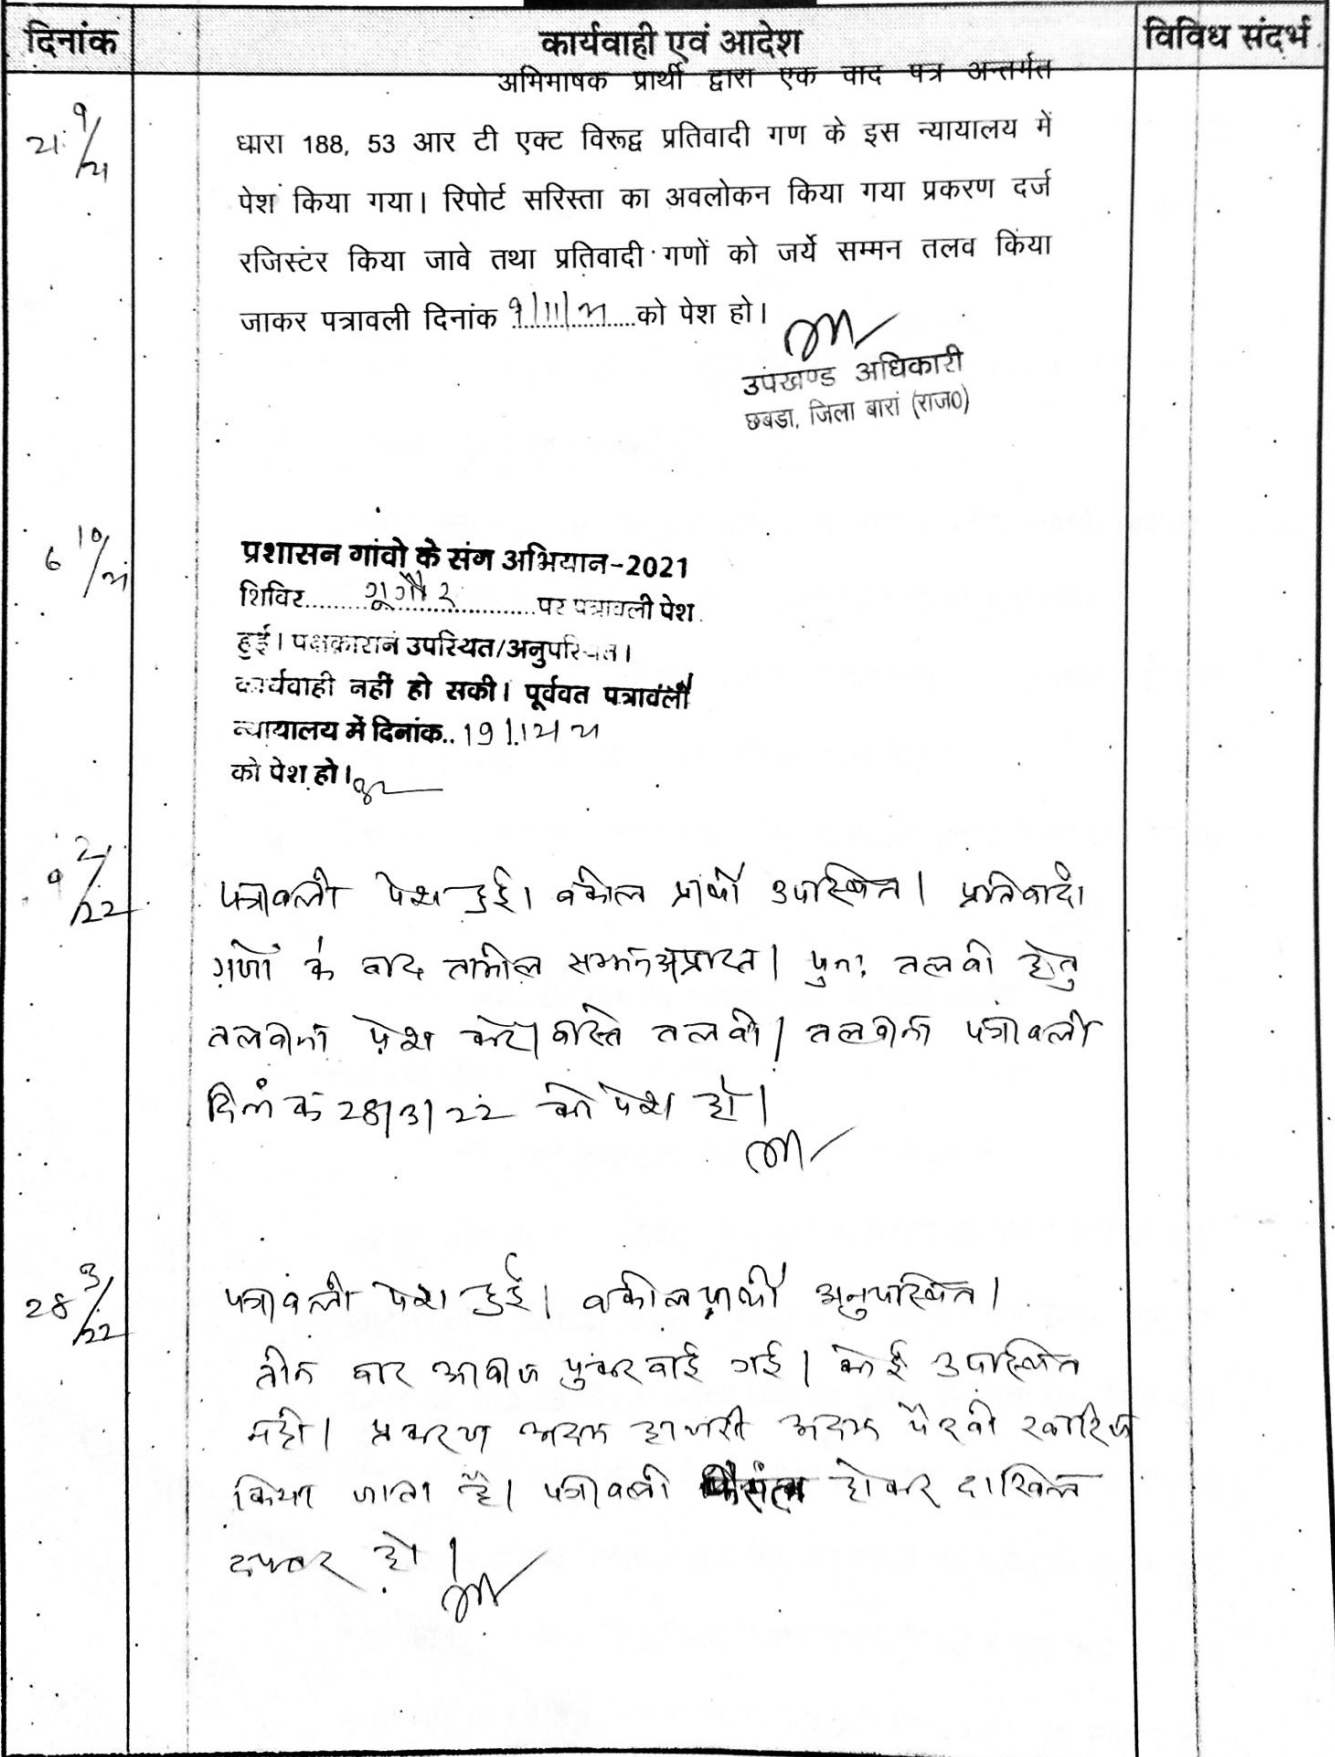 दिनांक कार्यवाही एवं आदेश विविध संदर्भ
अभिमाषक प्रार्थी द्वारा एक वाद पत्र अन्तर्गत
21 9/21 धारा 188, 53 आर टी एक्ट विरूद्व प्रतिवादी गण के इस न्यायालय में
पेश किया गया। रिपोर्ट सरिस्ता का अवलोकन किया गया प्रकरण दर्ज
रजिस्टंर किया जावे तथा प्रतिवादी गणों को जर्ये सम्मन तलव किया
जाकर पत्रावली दिनांक 9/11/21 को पेश हो।
उपंखण्ड अधिकारी
छबडा, जिला बारां (राज0)
6 10/21 प्रशासन गांवो के संग अभियान-2021
शिविर.....गूगौर.....पर पत्रावली पेश
हुई। पक्षकारानं उपस्थित/अनुपस्थित।
कार्यवाही नहीं हो सकी। पूर्ववत पत्रावली
न्यायालय में दिनांक.. 19/12/21
को पेश हो।
9 2/22 पत्रावली पेश हुई। वकील प्रार्थी उपस्थित। प्रतिवादी
गणों के बाद तामील सम्मन अप्राप्त। पुनः तलवी हेतु
तलवाना पेश करे। वास्ते तलवी/तलवाना पत्रावली
दिनांक 28/3/22 को पेश हो।
28 3/22 पत्रावली पेश हुई। वकील प्रार्थी अनुपस्थित।
तीन बार आवाज पुकरवाई गई। कोई उपस्थित
नही। प्रकरण अदम हाजरी अदम पैरवी खारिज
किया जाता है। पत्रावली होकर दाखिल
दफ्तर हो।